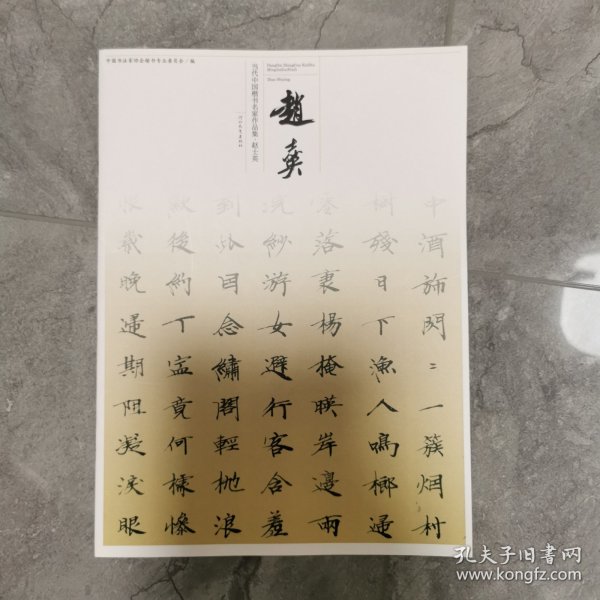 中国书法家协会楷书专业委员会·编
Dangdai Zhongguo Kaishu
Mingjiazuopinji
Zhao Shiying
当代中国楷书名家作品集·赵士英
趙士英
中酒旆閃二一簇烟村
樹殘日下漁人鳴榔歸
零落衰楊掩暎岸邊兩
浣紗游女避行客含羞
到此因念繡閣輕抛浪
歎後約丁寍竟何據慘
恨歲晚歸期阻凝淚眼
孔夫子旧书网
www.kongfz.com